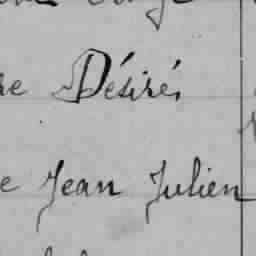 re Désiré,
e Jean Julien